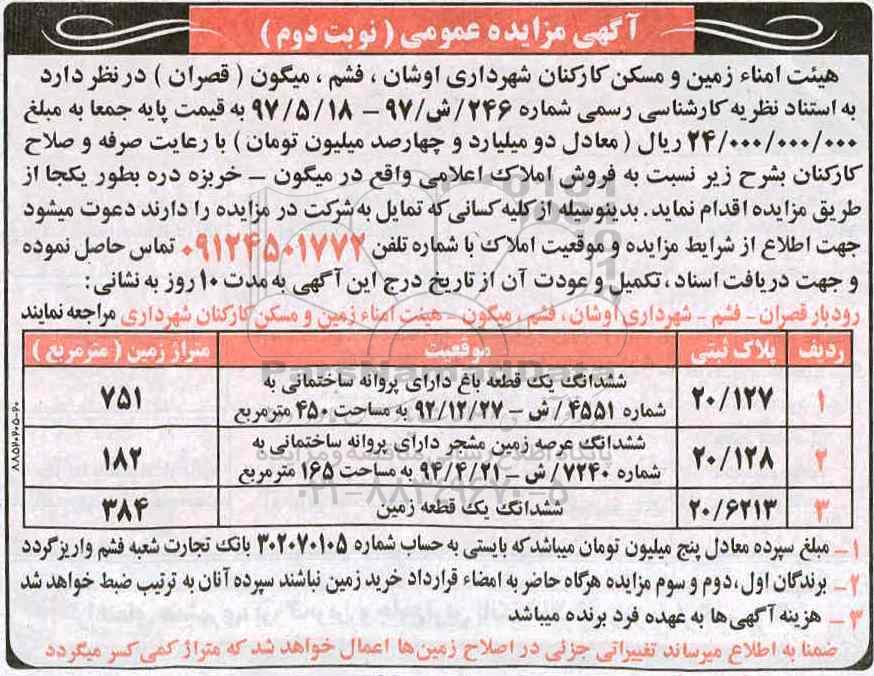 آگهی مزایده عمومی ( نوبت دوم )
هیئت امناء زمین و مسکن کارکنان شهرداری اوشان ، فشم ، میگون ( قصران ) در نظر دارد
به استناد نظریه کارشناسی رسمی شماره ۲۴۶/ش/۹۷ – ۹۷/۵/۱۸ به قیمت پایه جمعا به مبلغ
۲۴/۰۰۰/۰۰۰/۰۰۰ ریال ( معادل دو میلیارد و چهارصد میلیون تومان ) با رعایت صرفه و صلاح
کارکنان بشرح زیر نسبت به فروش املاک اعلامی واقع در میگون – خربزه دره بطور یکجا از
طریق مزایده اقدام نماید . بدینوسیله از کلیه کسانی که تمایل به شرکت در مزایده را دارند دعوت میشود
جهت اطلاع از شرایط مزایده و موقعیت املاک با شماره تلفن ۰۹۱۲۴۵۰۱۷۷۲ تماس حاصل نموده
و جهت دریافت اسناد ، تکمیل و عودت آن از تاریخ درج این آگهی به مدت ۱۰ روز به نشانی :
رودبار قصران – فشم – شهرداری اوشان ، فشم ، میگون – هیئت امناء زمین و مسکن کارکنان شهرداری مراجعه نمایند
ردیف پلاک ثبتی موقعیت متراژ زمین ( مترمربع )
۱ ۲۰/۱۲۷ ششدانگ یک قطعه باغ دارای پروانه ساختمانی به
شماره ۴۵۵۱ / ش – ۹۲/۱۲/۲۷ به مساحت ۴۵۰ مترمربع ۷۵۱
۲ ۲۰/۱۲۸ ششدانگ عرصه زمین مشجر دارای پروانه ساختمانی به
شماره ۷۲۴۰/ ش – ۹۴/۴/۲۱ به مساحت ۱۶۵ مترمربع ۱۸۲
۳ ۲۰/۶۲۱۳ ششدانگ یک قطعه زمین ۳۸۴
۱– مبلغ سپرده معادل پنج میلیون تومان میباشد که بایستی به حساب شماره ۳۰۲۰۷۰۱۰۵ بانک تجارت شعبه فشم واریز گردد
۲– برندگان اول ، دوم و سوم مزایده هرگاه حاضر به امضاء قرارداد خرید زمین نباشند سپرده آنان به ترتیب ضبط خواهد شد
۳– هزینه آگهی ها به عهده فرد برنده میباشد
ضمنا به اطلاع میرساند تغییراتی جزئی در اصلاح زمین ها اعمال خواهد شد که متراژ کمی کسر میگردد
ParsNamadData
پایگاه اطلاع رسانی مناقصه و مزایده
۰۲۱-۸۸۳۴۹۶۷۰-۵